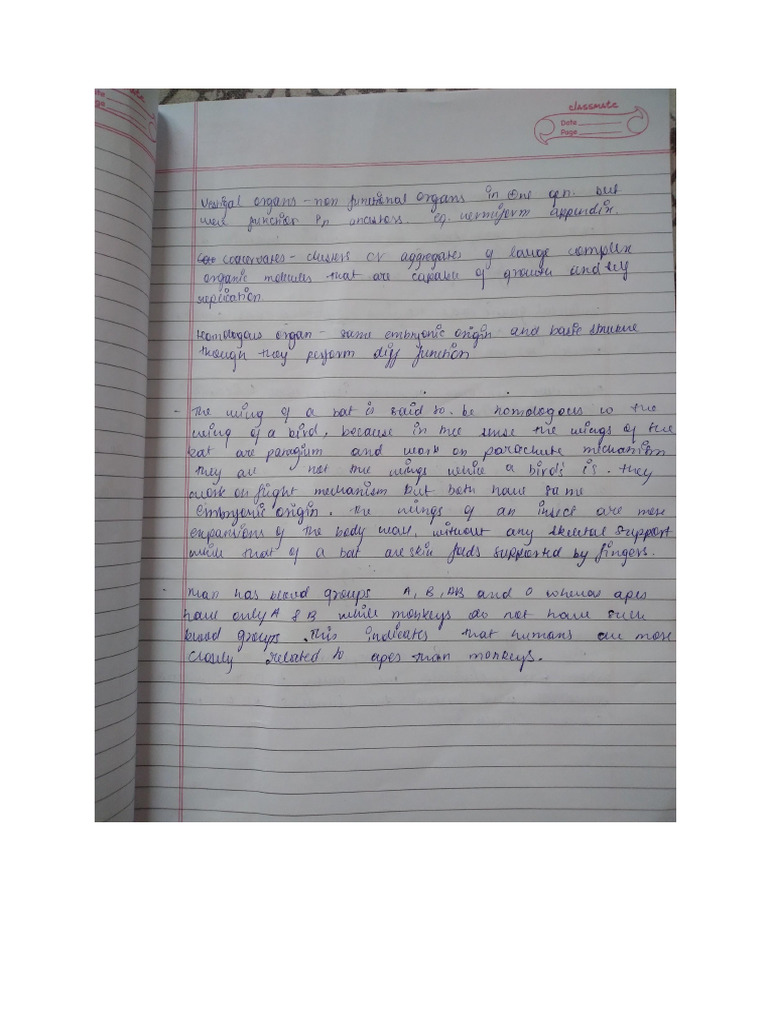 classmate
Date
Page
Vestigial organs - non functional organs in one gen. but
were function in ancestors. eg. vermiform appendix.
Coacervates - clusters or aggregates of large complex
organic molecules that are capable of growth and self
replication
Homologous organ - same embryonic origin and basic structure
though they perform diff function
- The wing of a bat is said to be homologous to the
wing of a bird, because in the sense the wings of the
bat are patagium and work on parachute mechanism
they are not true wings while a bird's is. they
work on flight mechanism but both have same
embryonic origin. The wings of an insect are mere
expansions of the body wall, without any skeletal support
while that of a bat are skin folds supported by fingers.
- Man has blood groups A, B, AB and O whereas apes
have only A & B while monkeys do not have such
blood groups. This indicates that humans are more
closely related to apes than monkeys.